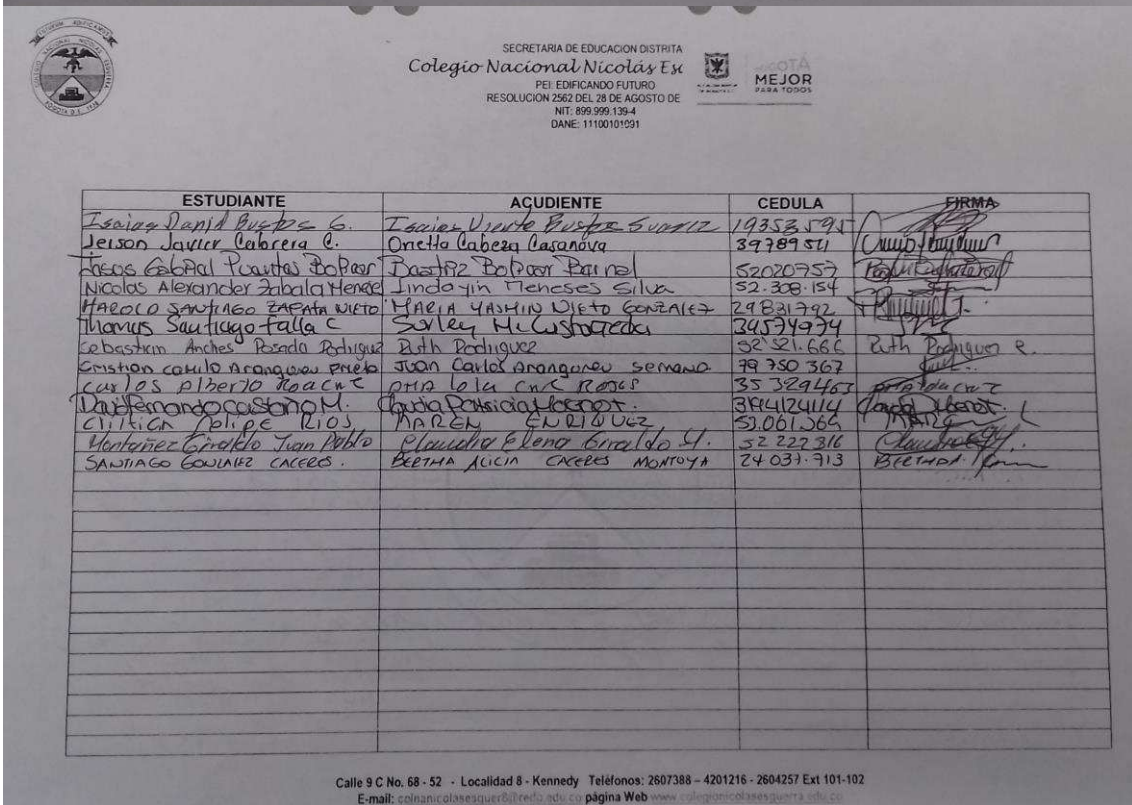 SECRETARIA DE EDUCACION DISTRITA
Colegio Nacional Nicolás Es
PEI: EDIFICANDO FUTURO
RESOLUCION 2562 DEL 28 DE AGOSTO DE
NIT: 899.999.139-4
DANE: 11100101091
MEJOR
PARA TODOS
ESTUDIANTE ACUDIENTE CEDULA FIRMA
Isaias David Bustos G. Isaias Vicente Bustos Suarez 19353595
Jeison Javier Cabrera C. Orietta Cabeza Casanova 39789511
52020757
Nicolas Alexander Zabala Meneses Lindayin Meneses Silva 52.308.154
HAROLD SANTIAGO ZAPATA NIETO MARIA YASMIN NIETO GONZALEZ 29831792
Thomas Santiago Falla C 34574974
Sebastian Andres Posada Rodriguez Ruth Rodriguez 52'521.666 Ruth Rodriguez R.
Cristian camilo Aranguren prieto Juan Carlos Aranguren serrano. 79 750 367
carlos Alberto Roa 35 329463
David Fernando castaño M. Claudia Patricia
Felipe RIOS ENRIQUEZ 53.061.364
Montañez Giraldo Juan Pablo Claudia Elena Giraldo 52 222 316
SANTIAGO GONZALEZ CACERES. BERTHA ALICIA CACERES MONTOYA 24 037.713
Calle 9 C No. 68 - 52 - Localidad 8 - Kennedy Teléfonos: 2607388 – 4201216 - 2604257 Ext 101-102
E-mail: página Web www.colegionicolasesguerra.edu.co